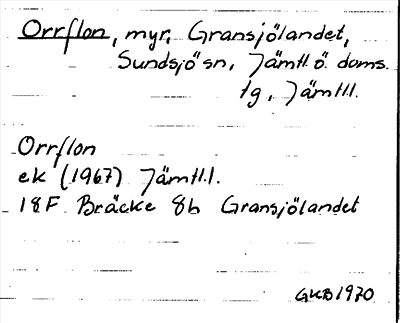 Orrflon, myr, Gransjölandet,
Sundsjö sn, Jämtl ö. doms.
tg, Jämtl.
Orrflon
ek (1967) Jämtl.
18F Bräcke 8h Gransjölandet
GKB 1970